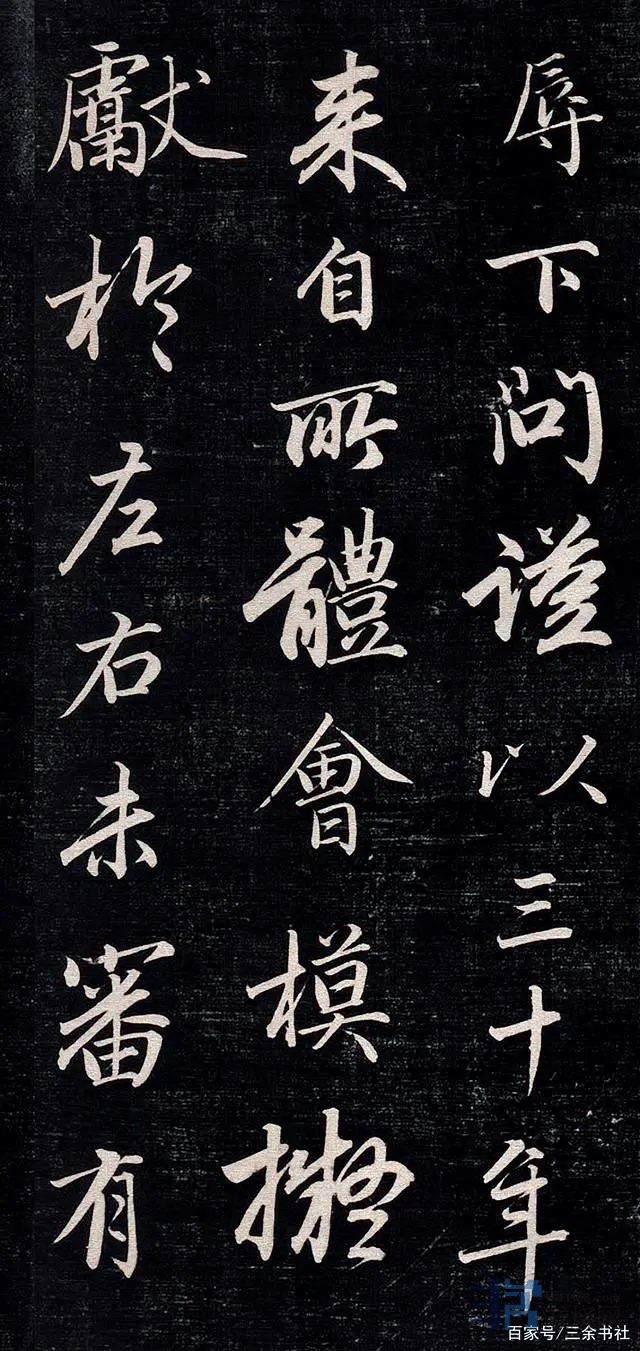 辱下問謹以三十年
来自所體會模擬
獻於左右未審有
百家号/三余书社